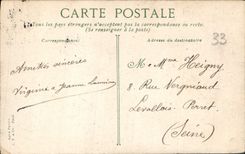 CARTE POSTALE
Tous les pays étrangers n'acceptent pas la correspondance au recto.
(Se renseigner à la poste)
Correspondance
Adresse du destinataire
33
Amitiés sincères
Virginie & Jeanne
M. & Mme Heigny
8. Rue Vergniaud
Levallois-Perret.
(Seine)